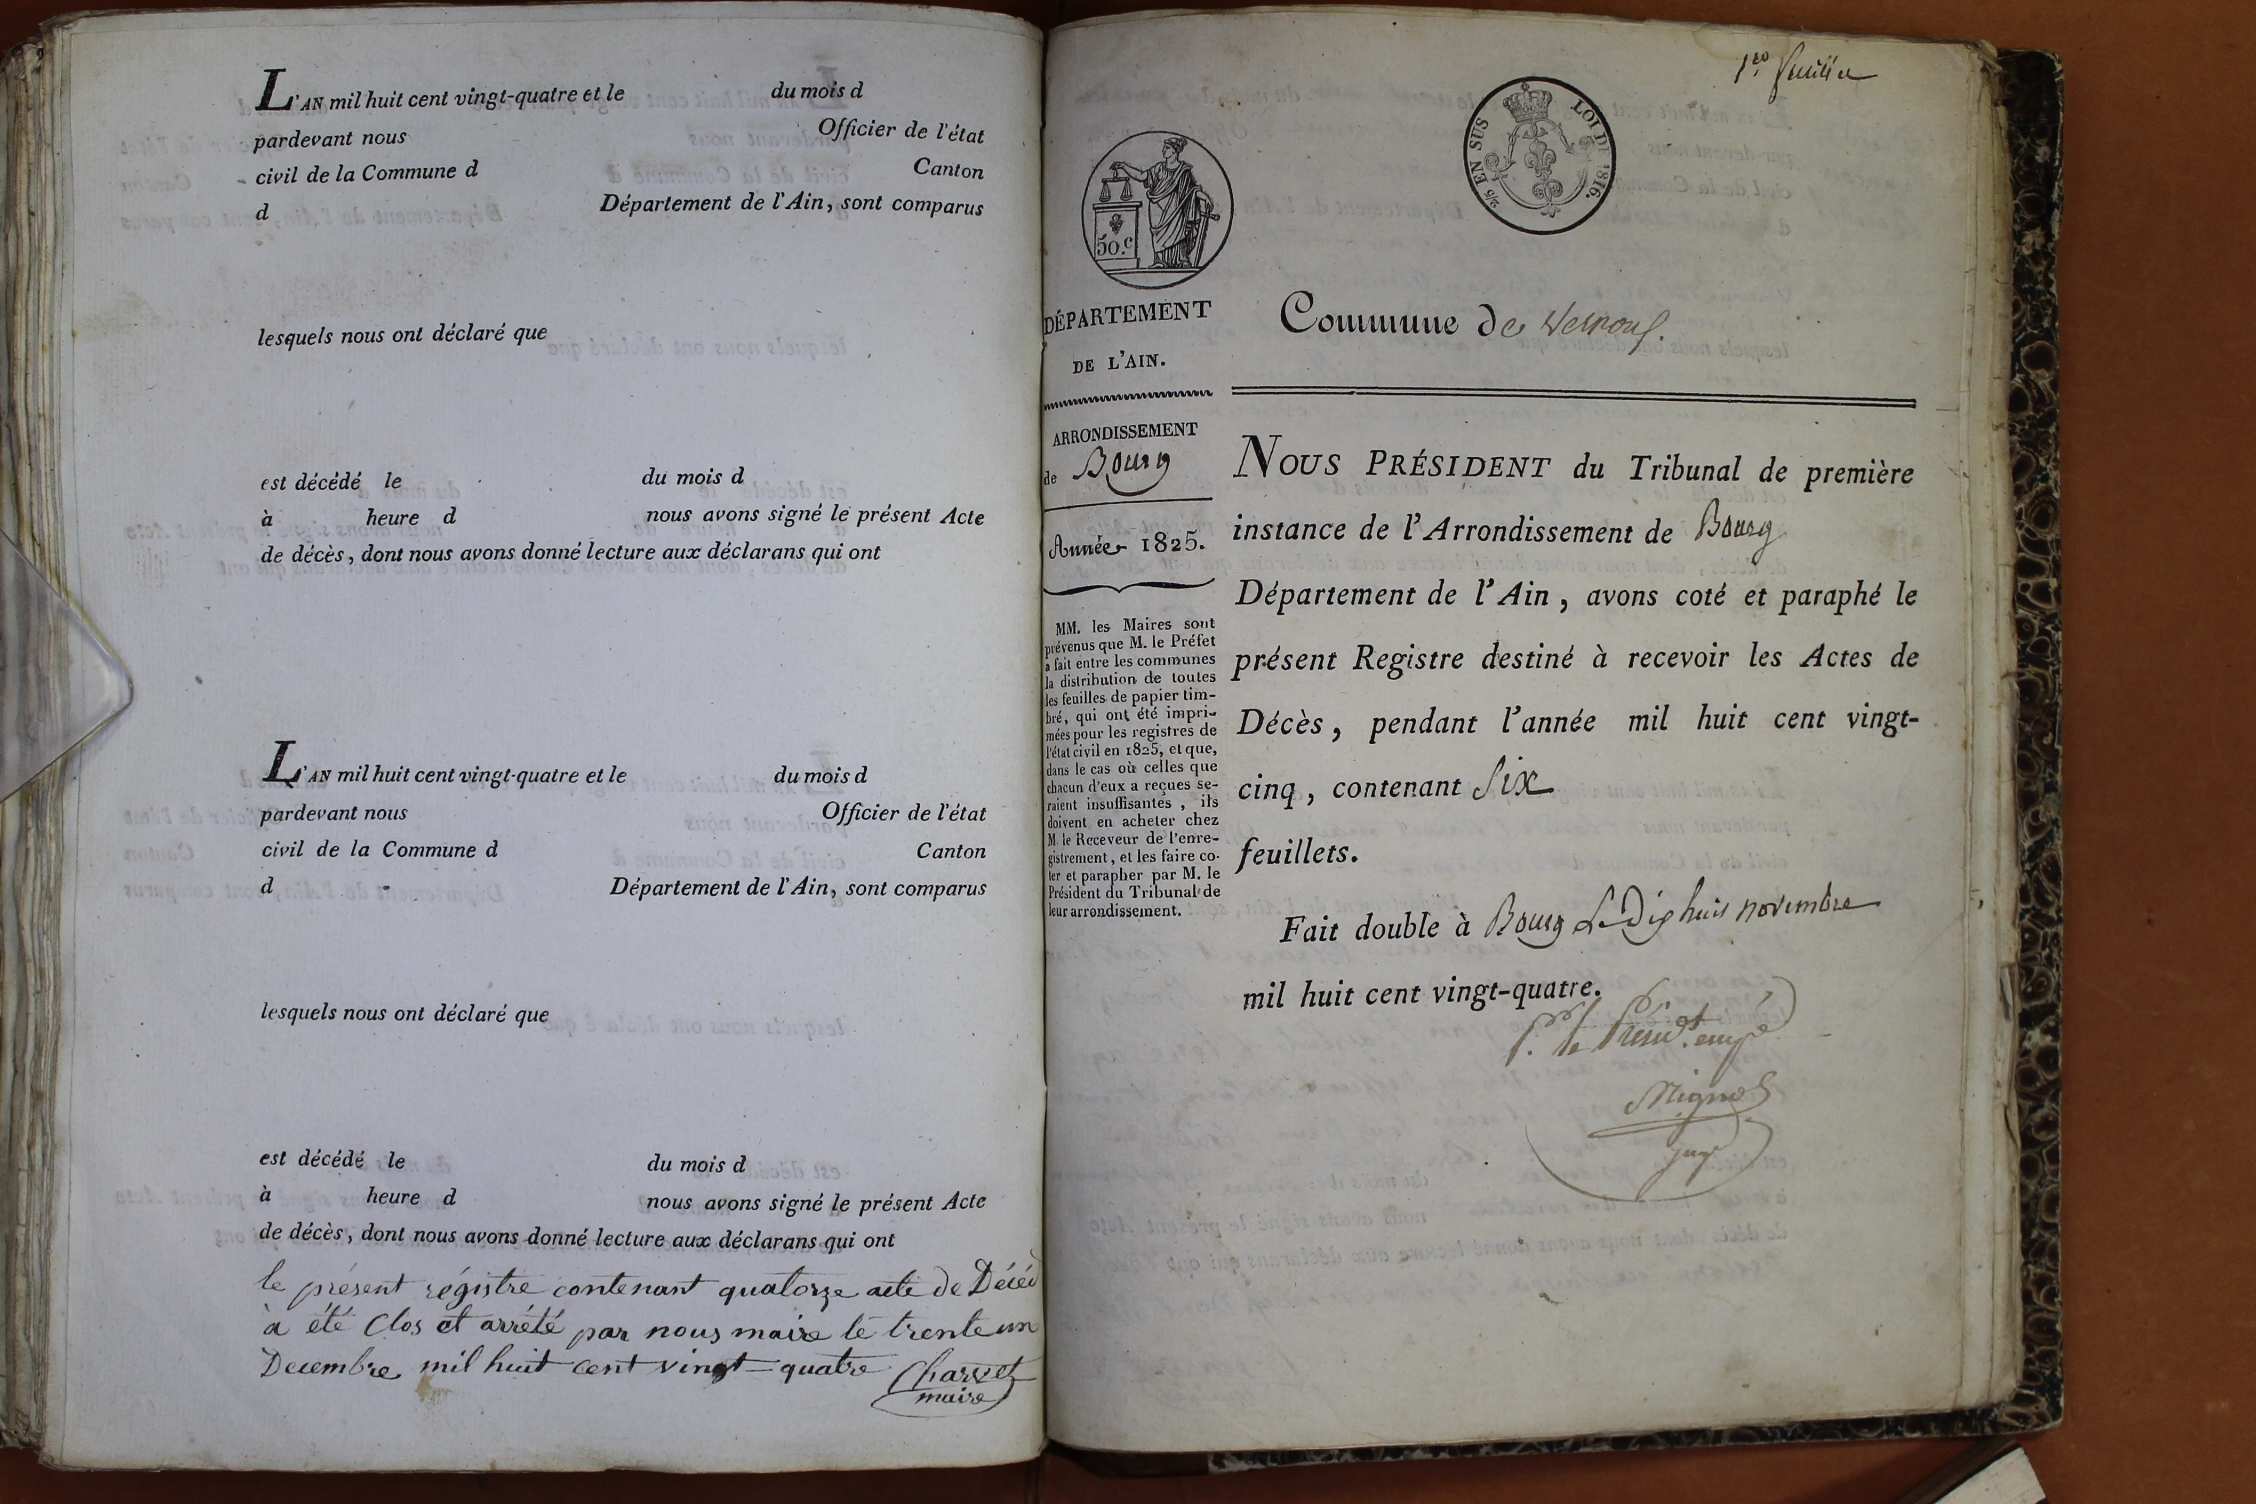 L'AN mil huit cent vingt-quatre et le du mois d
pardevant nous Officier de l'état
civil de la Commune d Canton
d Département de l'Ain, sont comparus
lesquels nous ont déclaré que
est décédé le du mois d
à heure d nous avons signé le présent Acte
de décès, dont nous avons donné lecture aux déclarans qui ont
L'AN mil huit cent vingt-quatre et le du mois d
pardevant nous Officier de l'état
civil de la Commune d Canton
d Département de l'Ain, sont comparus
lesquels nous ont déclaré que
est décédé le du mois d
à heure d nous avons signé le présent Acte
de décès, dont nous avons donné lecture aux déclarans qui ont
le présent régistre contenant quatorze acte de Décéd
à été Clos et arrété par nous maire le trente un
Decembre mil huit cent vingt-quatre Charvet
maire
1er feuillet
2/5 EN SUS LOI DE 1816.
50.c
DÉPARTEMENT
DE L'AIN.
ARRONDISSEMENT
de Bourg
Année 1825.
MM. les Maires sont
prévenus que M. le Préfet
a fait entre les communes
la distribution de toutes
les feuilles de papier tim-
bré, qui ont été impri-
mées pour les registres de
l'état civil en 1825, et que,
dans le cas où celles que
chacun d'eux a reçues se-
raient insuffisantes, ils
doivent en acheter chez
M. le Receveur de l'enre-
gistrement, et les faire co-
ter et parapher par M. le
Président du Tribunal de
leur arrondissement.
Commune de Vernoux.
NOUS PRÉSIDENT du Tribunal de première
instance de l'Arrondissement de Bourg
Département de l'Ain, avons coté et paraphé le
présent Registre destiné à recevoir les Actes de
Décès, pendant l'année mil huit cent vingt-
cinq, contenant Six
feuillets.
Fait double à Bourg Le Dix huit novembre
mil huit cent vingt-quatre.
P. le Présidt. empé
juge